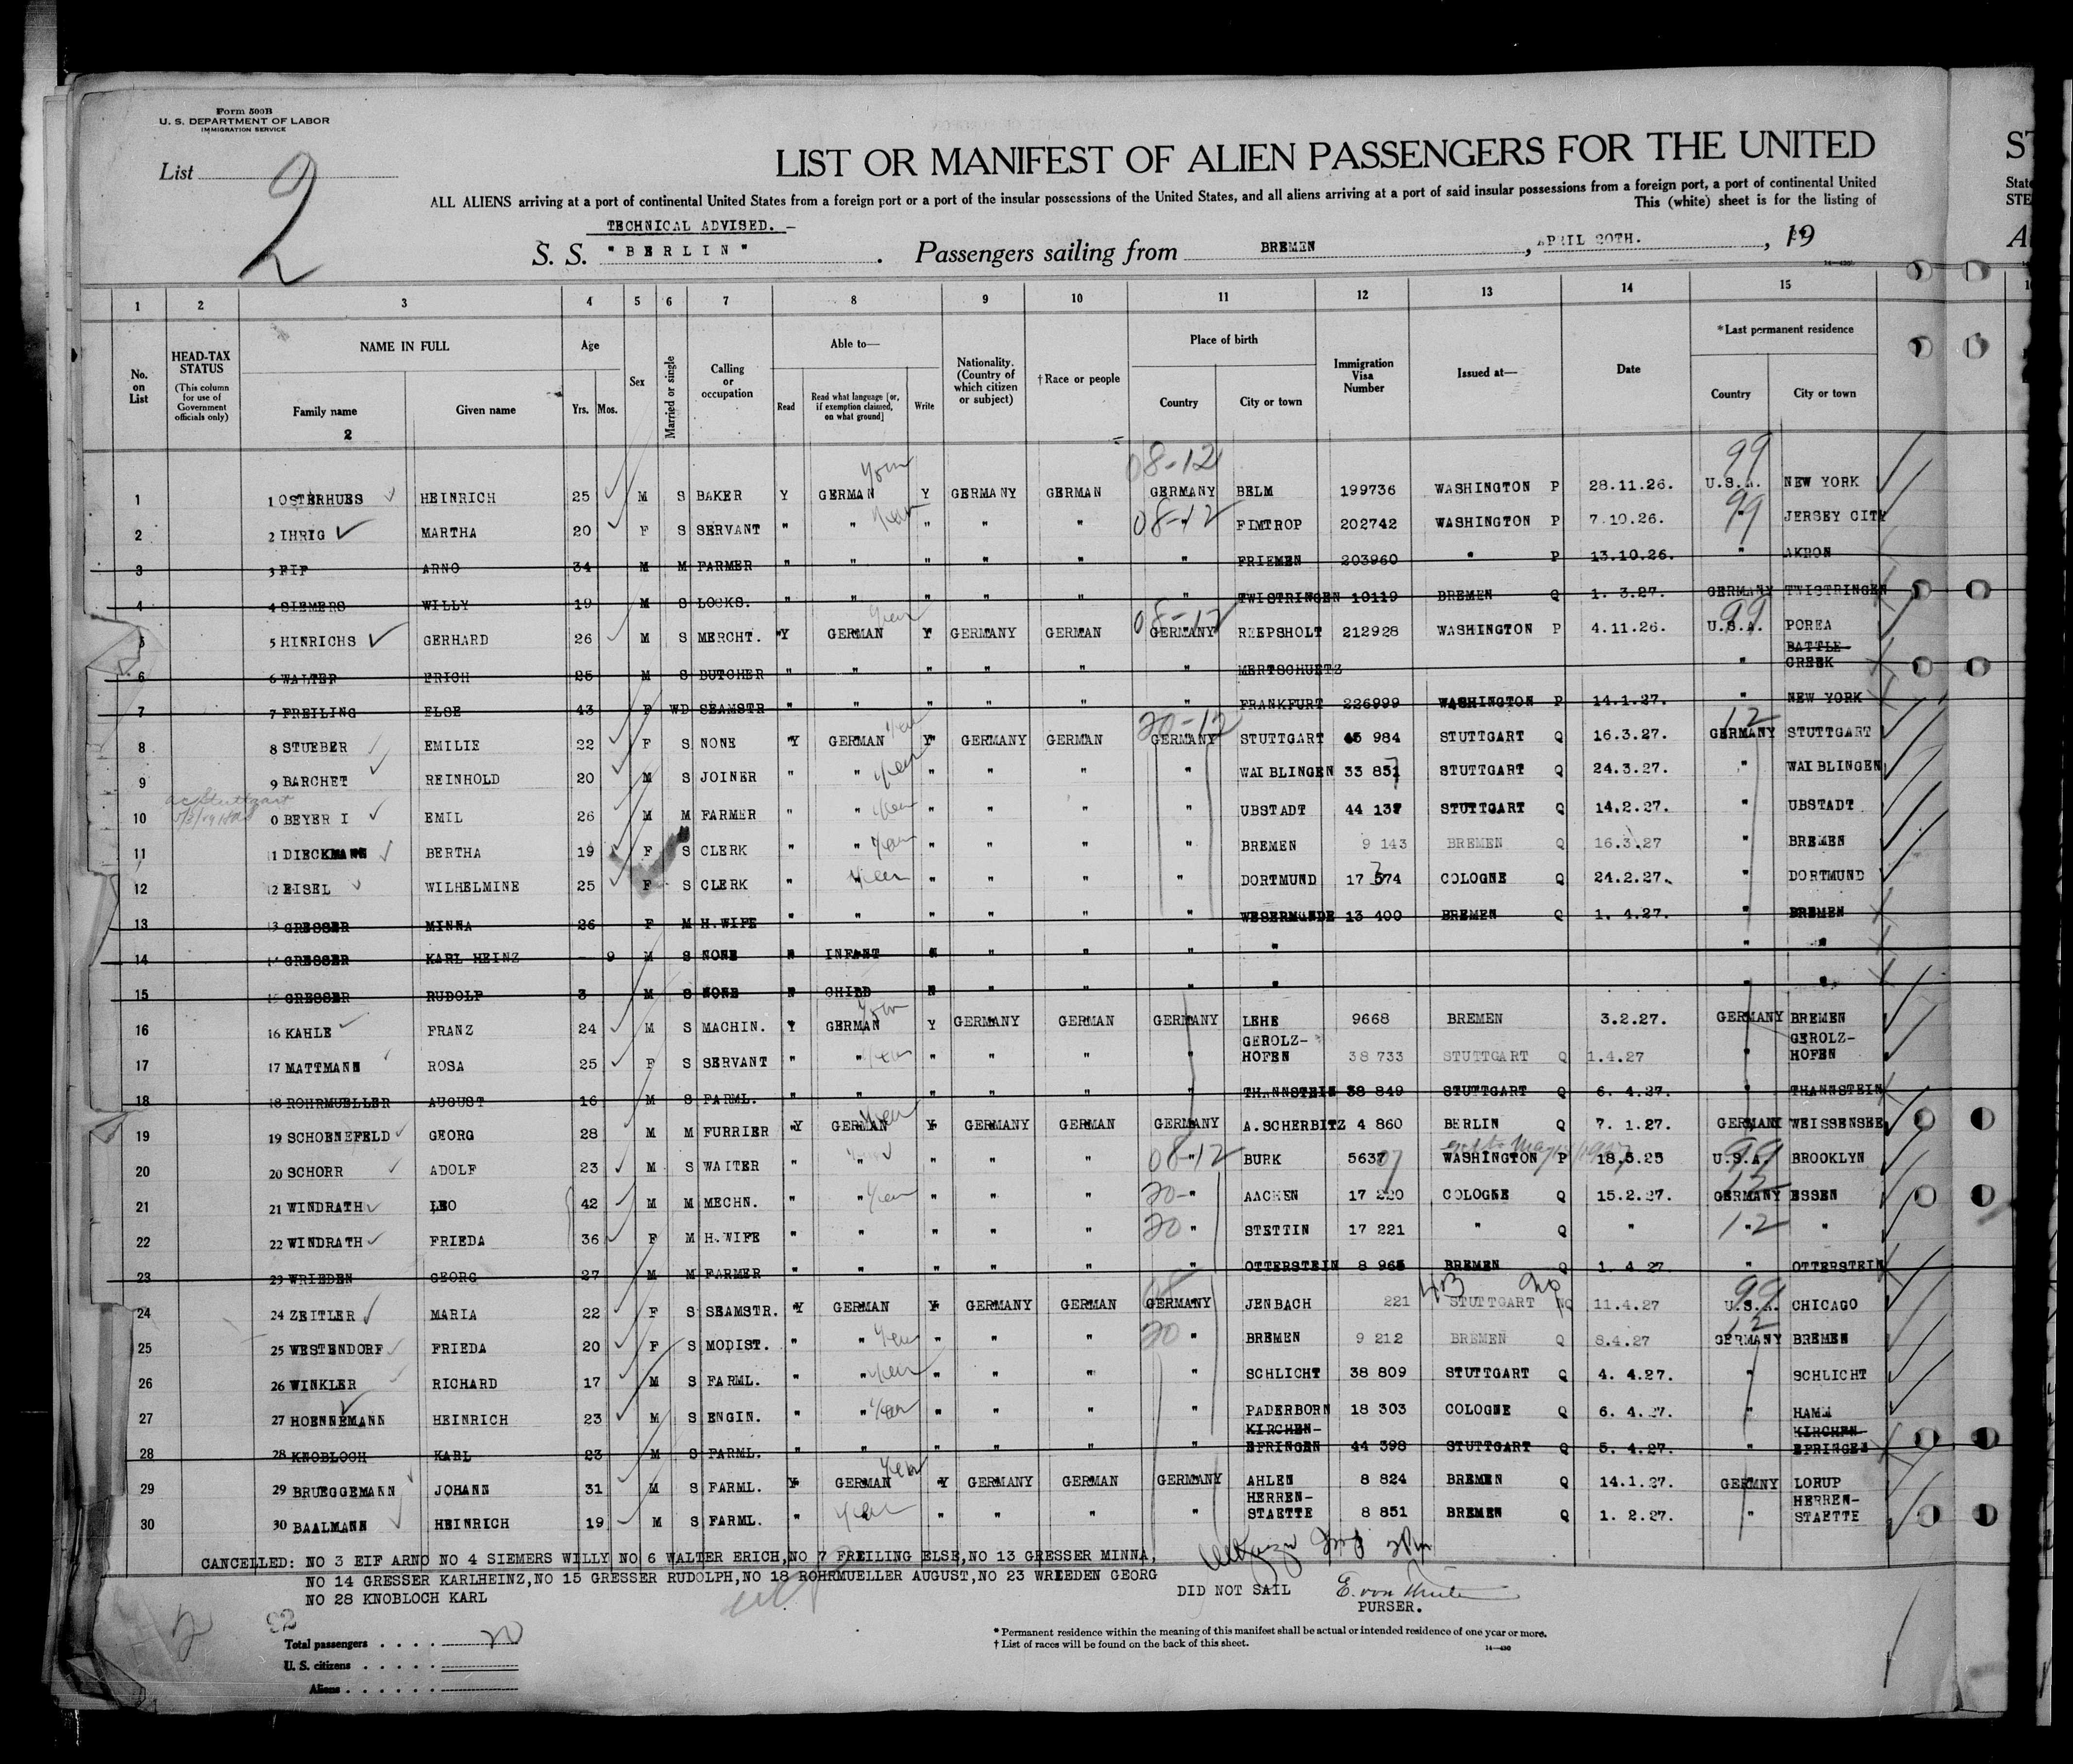 Form 500B
U. S. DEPARTMENT OF LABOR
IMMIGRATION SERVICE
List 2
LIST OR MANIFEST OF ALIEN PASSENGERS FOR THE UNITED
ALL ALIENS arriving at a port of continental United States from a foreign port or a port of the insular possessions of the United States, and all aliens arriving at a port of said insular possessions from a foreign port, a port of continental United
This (white) sheet is for the listing of
TECHNICAL ADVISED. -
S. S. "BERLIN" . Passengers sailing from BREMEN , APRIL 20TH. , 19
1 2 3 4 5 6 7 8 9 10 11 12 13 14 15
No. on List
HEAD-TAX STATUS (This column for use of Government officials only)
NAME IN FULL
Family name
Given name
2
Age
Yrs. Mos.
Sex
Married or single
Calling or occupation
Able to—
Read
Read what language [or, if exemption claimed, on what ground]
Write
Nationality. (Country of which citizen or subject)
†Race or people
Place of birth
Country
City or town
Immigration Visa Number
Issued at—
Date
*Last permanent residence
Country
City or town
08-12 99
1 1 OSTERHUES HEINRICH 25 M S BAKER Y GERMAN Y GERMANY GERMAN GERMANY BELM 199736 WASHINGTON P 28.11.26. U.S.A. NEW YORK
2 2 IHRIG MARTHA 20 F S SERVANT " " " " " 08-12 FIMTROP 202742 WASHINGTON P 7.10.26. 99 JERSEY CITY
3 3 EIF ARNO 34 M M FARMER " " " " " " FRIEMEN 203960 " P 13.10.26. " AKRON
4 4 SIEMERS WILLY 19 M S LOCKS. " " " " " " TWISTRINGEN 10119 BREMEN Q 1. 3.27. GERMANY TWISTRINGEN
5 5 HINRICHS GERHARD 26 M S MERCHT. Y GERMAN Y GERMANY GERMAN GERMANY REEPSHOLT 212928 WASHINGTON P 4.11.26. U.S.A. POREA
6 6 WALTER ERICH 25 M S BUTCHER " " " " " " MERTSCHUETZ " BATTLE-CREEK
7 7 FREILING ELSE 43 F WD SEAMSTR " " " " " " FRANKFURT 226999 WASHINGTON P 14.1.27. " NEW YORK
8 8 STUEBER EMILIE 22 F S NONE Y GERMAN Y GERMANY GERMAN GERMANY STUTTGART 45 984 STUTTGART Q 16.3.27. GERMANY STUTTGART
9 9 BARCHET REINHOLD 20 M S JOINER " " " " " " WAIBLINGEN 33 857 STUTTGART Q 24.3.27. " WAIBLINGEN
10 0 BEYER I EMIL 26 M M FARMER " " " " " " UBSTADT 44 137 STUTTGART Q 14.2.27. " UBSTADT
11 11 DIECKMANN BERTHA 19 F S CLERK " " " " " " BREMEN 9 143 BREMEN Q 16.3.27 " BREMEN
12 12 EISEL WILHELMINE 25 F S CLERK " " " " " " DORTMUND 17 574 COLOGNE Q 24.2.27. " DORTMUND
13 13 GRESSER MINNA 26 F M H.WIFE " " " " " " WESERMUNDE 13 400 BREMEN Q 1. 4.27. " BREMEN
14 14 GRESSER KARL HEINZ - 9 M S NONE N INFANT N " " " " " "
15 15 GRESSER RUDOLF 3 M S NONE N CHILD N " " " " "
16 16 KAHLE FRANZ 24 M S MACHIN. Y GERMAN Y GERMANY GERMAN GERMANY LEHE 9668 BREMEN 3.2.27. GERMANY BREMEN
17 17 MATTMANN ROSA 25 F S SERVANT " " " " " " GEROLZ-HOFEN 38 733 STUTTGART Q 1.4.27 " GEROLZ-HOFEN
18 18 ROHRMUELLER AUGUST 16 M S FARML. " " " " " " THANNSTEIN 38 849 STUTTGART Q 6. 4.27. " THANNSTEIN
19 19 SCHOENEFELD GEORG 28 M M FURRIER Y GERMAN Y GERMANY GERMAN GERMANY A.SCHERBITZ 4 860 BERLIN Q 7. 1.27. GERMANY WEISSENSEE
20 20 SCHORR ADOLF 23 M S WAITER " " " " " 08-12 BURK 5637 WASHINGTON P 18.5.25 U.S.A. BROOKLYN
21 21 WINDRATH LEO 42 M M MECHN. " " " " " 20-" AACHEN 17 220 COLOGNE Q 15.2.27. GERMANY ESSEN
22 22 WINDRATH FRIEDA 36 F M H.WIFE " " " " " 20 " STETTIN 17 221 " Q " 12 "
23 23 WRIEDEN GEORG 27 M M FARMER " " " " " " OTTERSTEIN 8 965 BREMEN Q 1. 4 27 " OTTERSTEIN
24 24 ZEITLER MARIA 22 F S SEAMSTR. Y GERMAN Y GERMANY GERMAN GERMANY JENBACH 221 STUTTGART NQ 11.4.27 U.S.A. CHICAGO
25 25 WESTENDORF FRIEDA 20 F S MODIST. " " " " " 20 " BREMEN 9 212 BREMEN Q 8.4.27 GERMANY BREMEN
26 26 WINKLER RICHARD 17 M S FARML. " " " " " " SCHLICHT 38 809 STUTTGART Q 4. 4.27. " SCHLICHT
27 27 HOENNEMANN HEINRICH 23 M S ENGIN. " " " " " " PADERBORN 18 303 COLOGNE Q 6. 4.27. " HAMM
28 28 KNOBLOCH KARL 23 M S FARML. " " " " " " KIRCHEN-EFRINGEN 44 398 STUTTGART Q 5. 4.27. " KIRCHEN-EFRINGEN
29 29 BRUEGGEMANN JOHANN 31 M S FARML. Y GERMAN Y GERMANY GERMAN GERMANY AHLEN 8 824 BREMEN Q 14.1.27. GERMNY LORUP
30 30 BAALMANN HEINRICH 19 M S FARML. " " " " " HERREN-STAETTE 8 851 BREMEN Q 1. 2.27. " HERREN-STAETTE
CANCELLED: NO 3 EIF ARNO NO 4 SIEMERS WILLY NO 6 WALTER ERICH,NO 7 FREILING ELSE,NO 13 GRESSER MINNA,
NO 14 GRESSER KARLHEINZ,NO 15 GRESSER RUDOLPH,NO 18 ROHRMUELLER AUGUST,NO 23 WRIEDEN GEORG
NO 28 KNOBLOCH KARL
DID NOT SAIL
PURSER.
Total passengers . . . . 20
U. S. citizens . . . . .
Aliens . . . . . .
* Permanent residence within the meaning of this manifest shall be actual or intended residence of one year or more.
† List of races will be found on the back of this sheet.
14—430